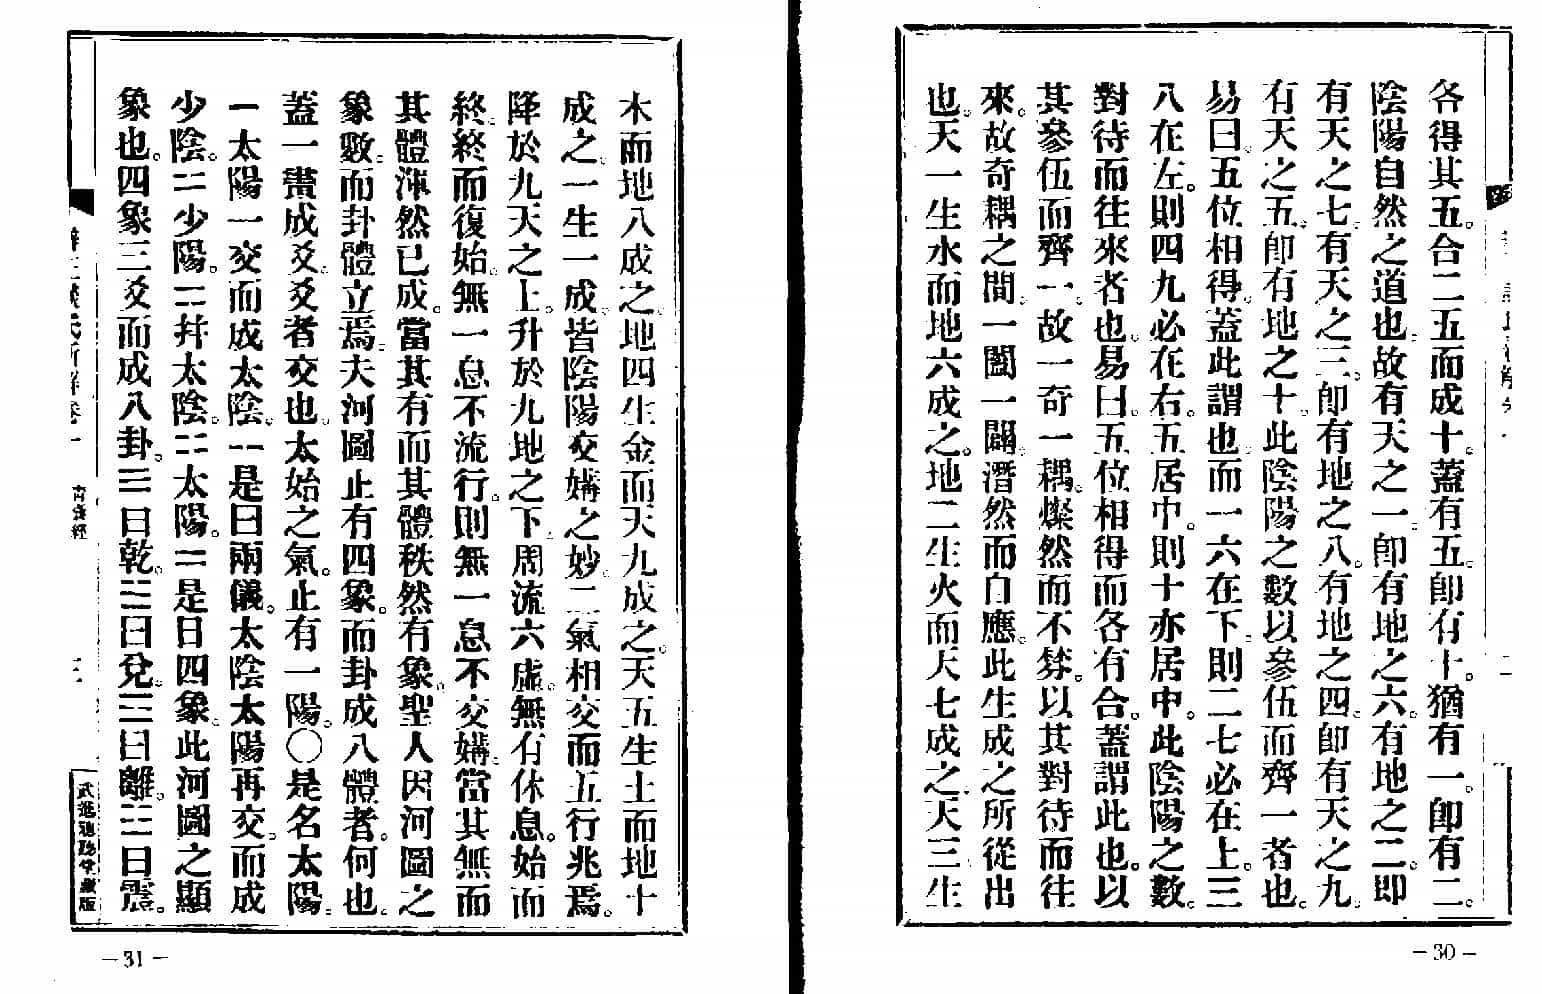 各得其五。合二五而成十。蓋有五。卽有十。猶有一。卽有二。
陰陽自然之道也。故有天之一。卽有地之六。有地之二。即
有天之七。有天之三。卽有地之八。有地之四。卽有天之九。
有天之五。卽有地之十。此陰陽之數以參伍而齊一者也。
易曰。五位相得。蓋此謂也。而一六在下。則二七必在上。三
八在左。則四九必在右。五居中。則十亦居中。此陰陽之數。
對待而往來者也。易曰。五位相得而各有合。蓋謂此也。以
其參伍而齊一。故一奇一耦。燦然而不棼。以其對待而往
來。故奇耦之間。一闔一闢。潛然而自應。此生成之所從出
也。天一生水而地六成之。地二生火而天七成之。天三生
木而地八成之。地四生金而天九成之。天五生土而地十
成之。一生一成。皆陰陽交媾之妙。二氣相交而五行兆焉。
降於九天之上。升於九地之下。周流六虛。無有休息。始而
終。終而復始。無一息不流行。則無一息不交媾。當其無而
其體渾然已成。當其有而其體秩然有象。聖人因河圖之
象數。而卦體立焉。夫河圖止有四象。而卦成八體者。何也。
蓋一畫成爻。爻者交也。太始之氣。止有一陽。〇是名太陽。
一太陽一交而成太陰。⚋是曰兩儀。太陰太陽再交。而成
少陰。⚍少陽。⚎幷太陰。⚏太陽。⚌是曰四象。此河圖之顯
象也。四象三爻而成八卦。☰曰乾。☱曰兌。☲曰離。☳曰震。
青囊經
三
武進
藏版
—30—
—31—